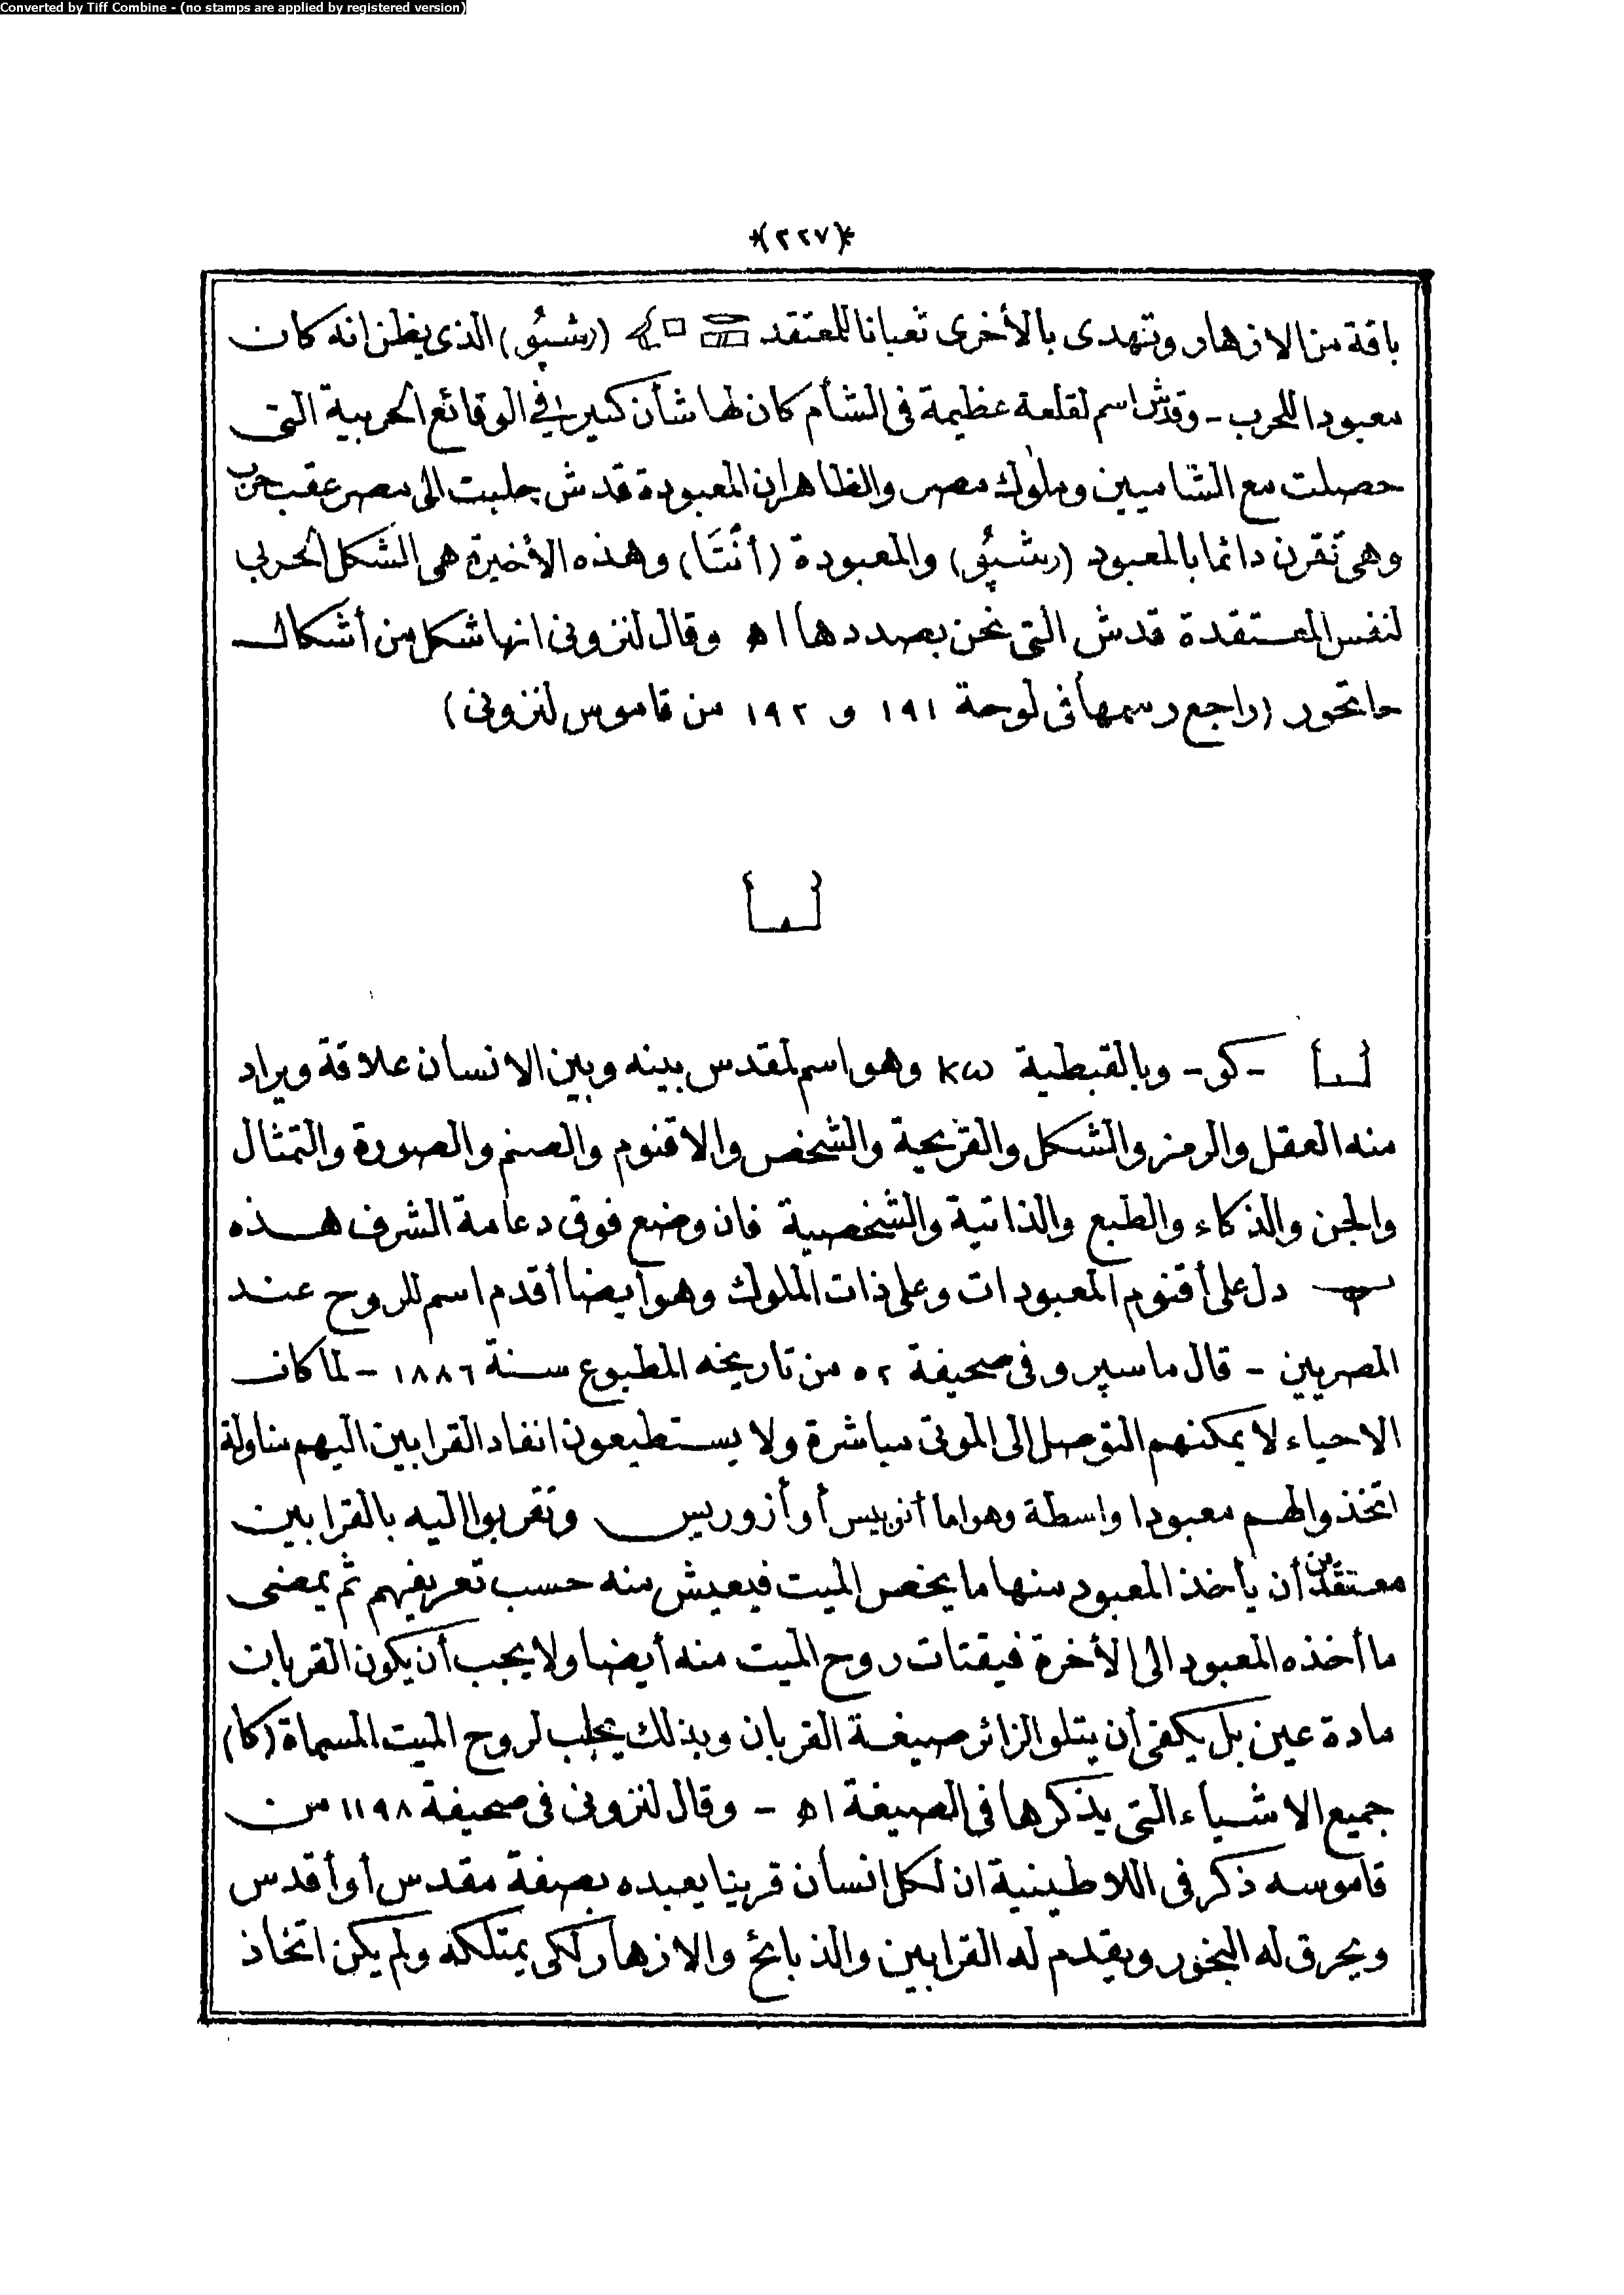 Converted by Tiff Combine - (no stamps are applied by registered version)
*(٢٢٧)*
باقة من الازهار وتهدى بالأخرى ثعبانا للمعتقد (رشپُو) الذى يظن انه كان
معبودا للحرب - وقدش اسم لقلعة عظيمة فى الشأم كان لها شأن كبير فى الوقائع الحربية التى
حصلت مع الشاميين وملوك مصر والظاهر ان المعبودة قدش جلبت الى مصر عقب حرب
وهى تقرن دائما بالمعبود (رشپُو) والمعبودة (أَنْتَا) وهذه الأخيرة هى الشكل الحربي
لنفس المعتقدة قدش التى نحن بصددها اه وقال لنزونى انها شكل من أشكال
حاتحور (راجع رسمها فى لوحة ١٩١ و ١٩٢ من قاموس لنزونى)
- كو - وبالقبطية ⲕⲱ وهو اسم لمقدس بينه وبين الانسان علاقة ويراد
منه العقل والرمز والشكل والقريحة والشخص والاقنوم والصنم والصورة والتمثال
والجن والذكاء والطبع والذاتية والشخصية فان وضع فوق دعامة الشرف هذه
دل على أقنوم المعبودات وعلى ذات الملوك وهو أيضا أقدم اسم للروح عند
المصريين - قال ماسپرو فى صحيفة ٥٢ من تاريخه المطبوع سنة ١٨٨٦ - لما كان
الاحياء لا يمكنهم التوصل الى الموتى مباشرة ولا يستطيعون انفاد القرابين اليهم مناولة
اتخذوا لهم معبودا واسطة وهو اما أنوبيس أو أزوريس وتقربوا اليه بالقرابين
معتقدين أن يأخذ المعبود منها ما يخص الميت فيعيش منه حسب تعريفهم ثم يمضى
ما أخذه المعبود الى الأخرة فيقتات روح الميت منه أيضا ولا يجب أن يكون القربان
مادة عين بل يكفى أن يتلو الزائر صيغة القربان وبذلك يجلب لروح الميت المسماة (كا)
جميع الاشياء التى يذكرها فى الصيغة اه - وقال لنزونى فى صحيفة ١١٩٨ من
قاموسه ذكر فى اللاطينية ان لكل انسان قرينا يعبده بصفة مقدس أو أقدس
ويحرق له البخور ويقدم له القرابين والذبائح والازهار لكى يمتلكه ولم يكن اتخاذ